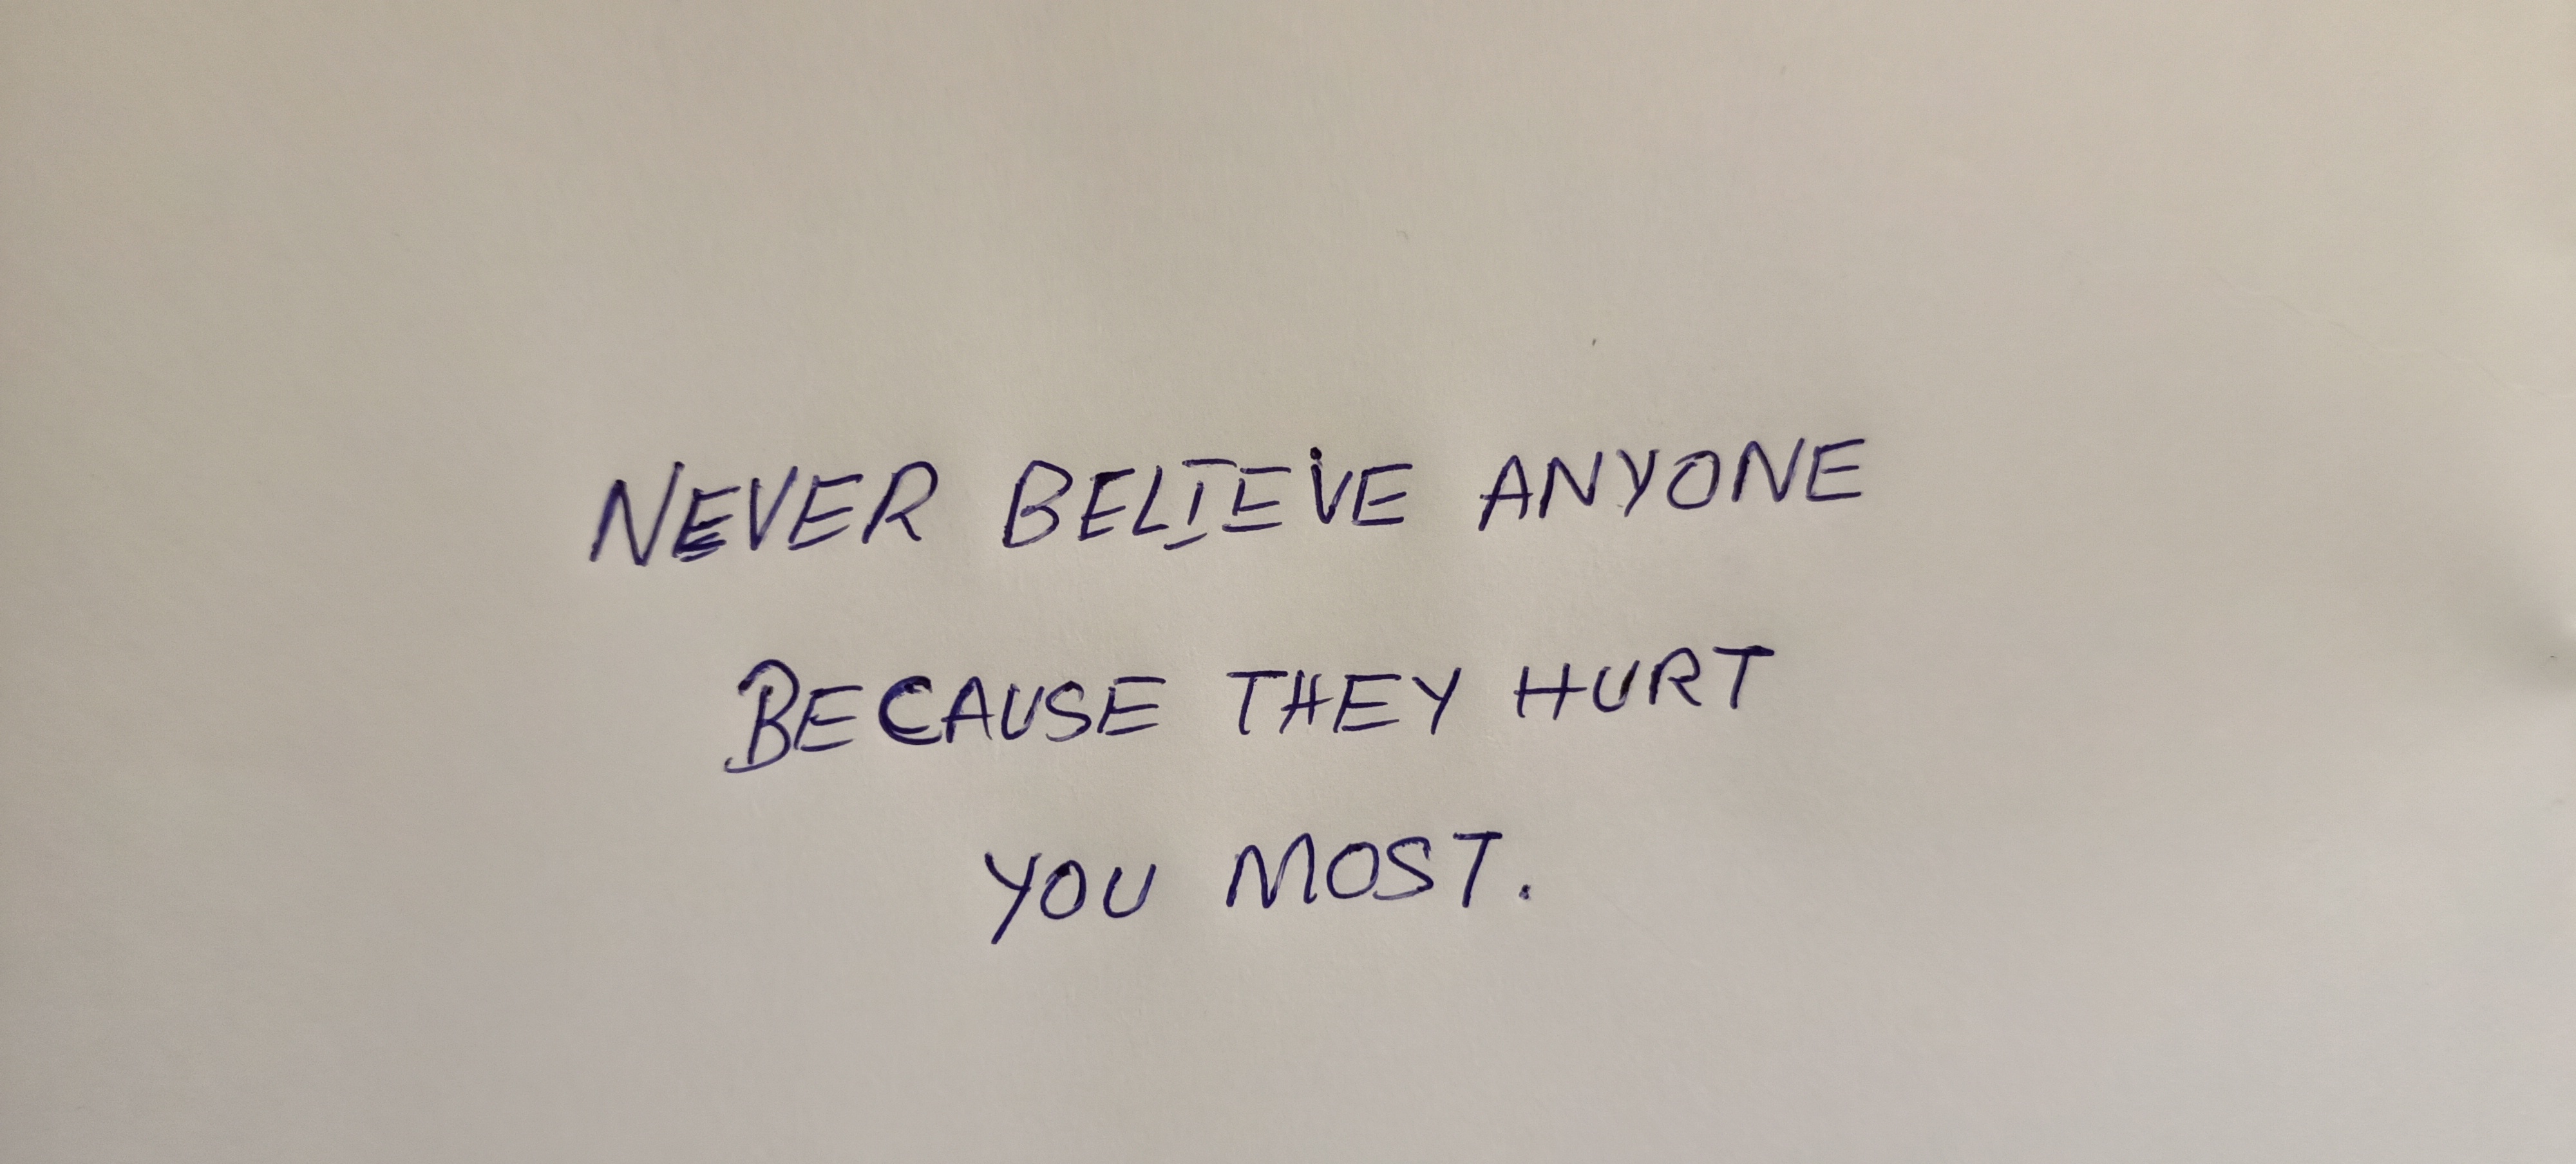 NEVER BELIEVE ANYONE
BECAUSE THEY HURT
YOU MOST.